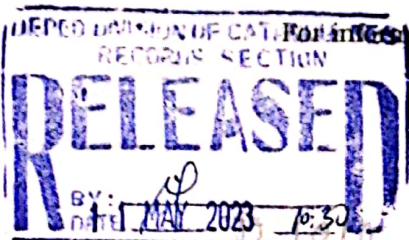 DEPED DIVISION OF
For
RECORDS SECTION
RELEASED
BY:
DATE 11 MAY 2023 10:30